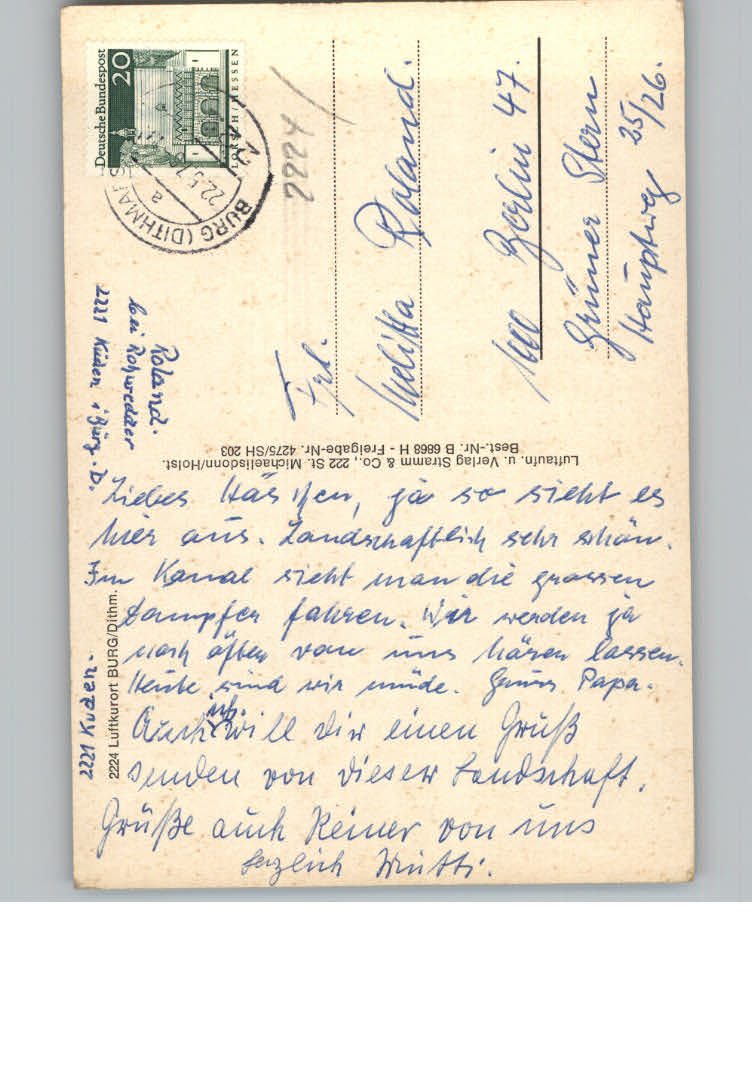 Deutsche Bundespost
20
LORSCH/HESSEN
BURG (DITHMARS
a
22.5.7
2224
Frl.
Melitta Roland.
1000 Berlin 47.
Grüner Stern
Hauptweg 25/26.
Roland.
bei Rohwedder
2221 Kuden i/Burg. D.
Luftaufn. u. Verlag Stramm & Co., 222 St. Michaelisdonn/Holst.
Best.-Nr. B 6868 H - Freigabe-Nr. 4275/SH 203
2221 Kuden.
2224 Luftkurort BURG/Dithm.
Liebes Häschen, ja so sieht es
hier aus. Landschaftlich sehr schön.
Im Kanal sieht man die grossen
Dampfer fahren. Wir werden ja
noch öfter von uns hören lassen.
Heute sind wir müde. Gruss Papa.
Auch ich will dir einen Gruß
senden von dieser Landschaft.
Grüße auch Reiner von uns
herzlich Mutti.